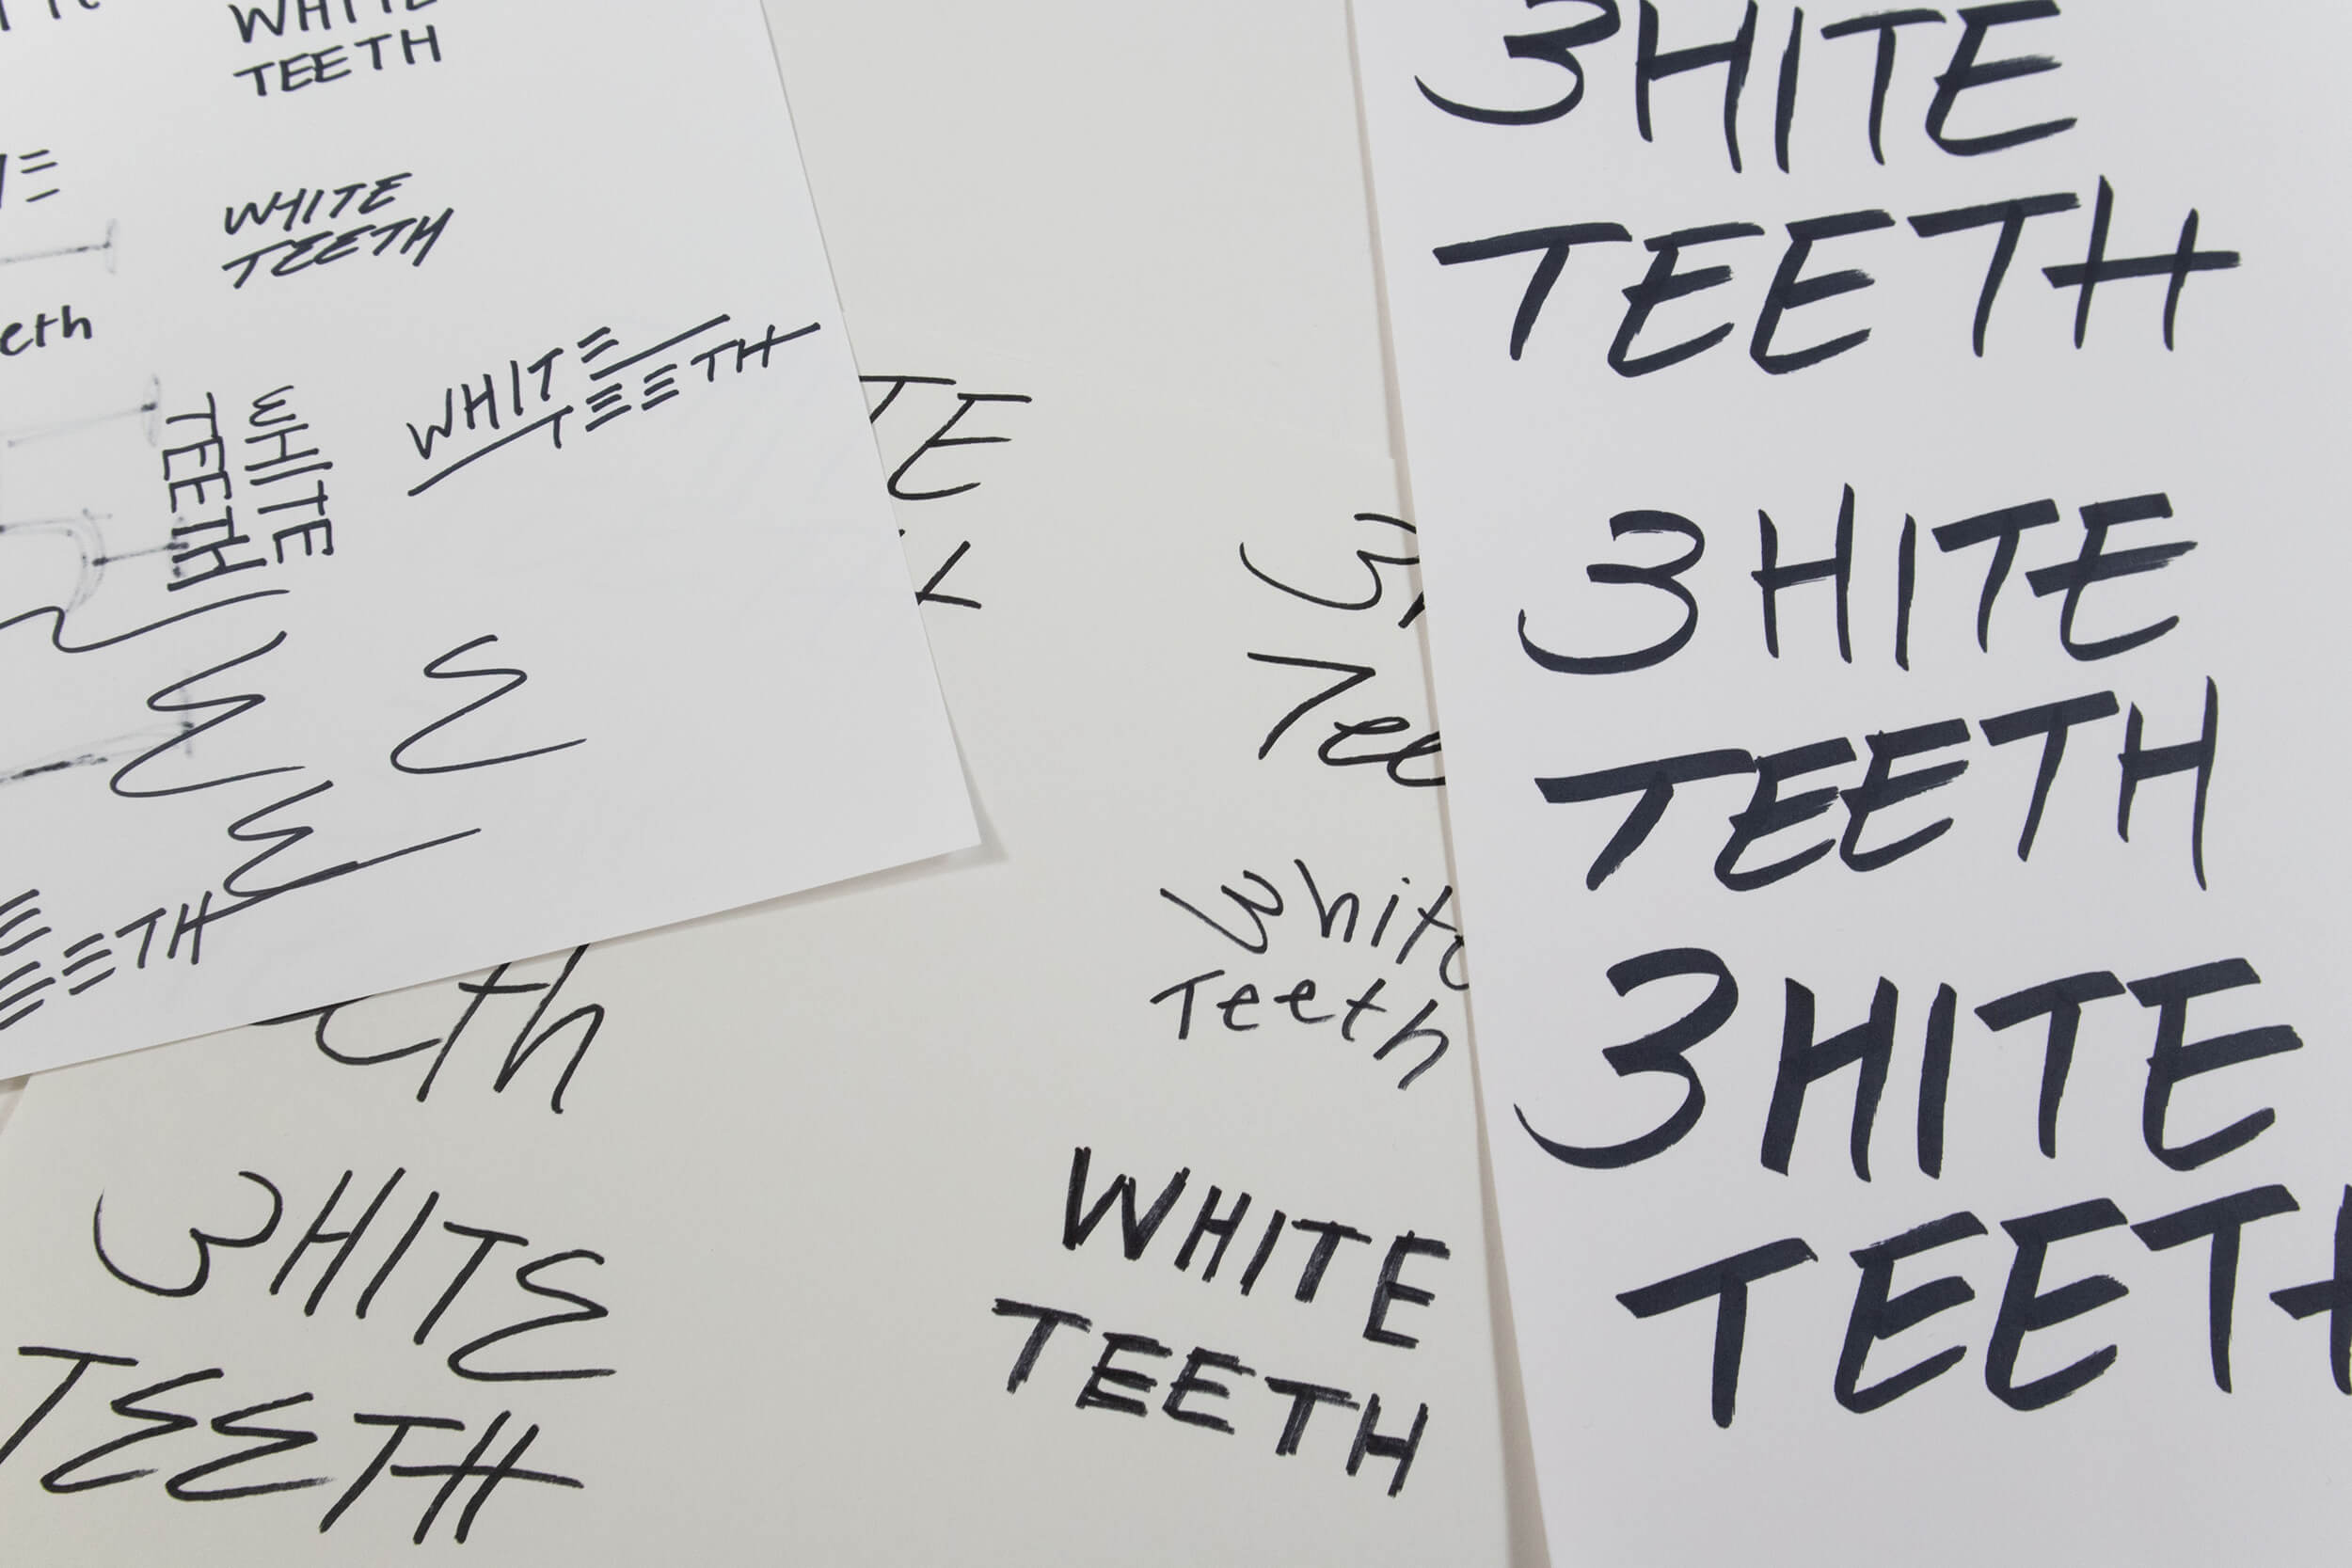 WHITE
TEETH
WHITE
TEETH
eth
WHITE
TEETH
WHITE
TEETH
EETH
TE
th
3HITE
TEETH
3
Tee
White
Teeth
WHITE
TEETH
3HITE
TEETH
3HITE
TEETH
3HITE
TEETH